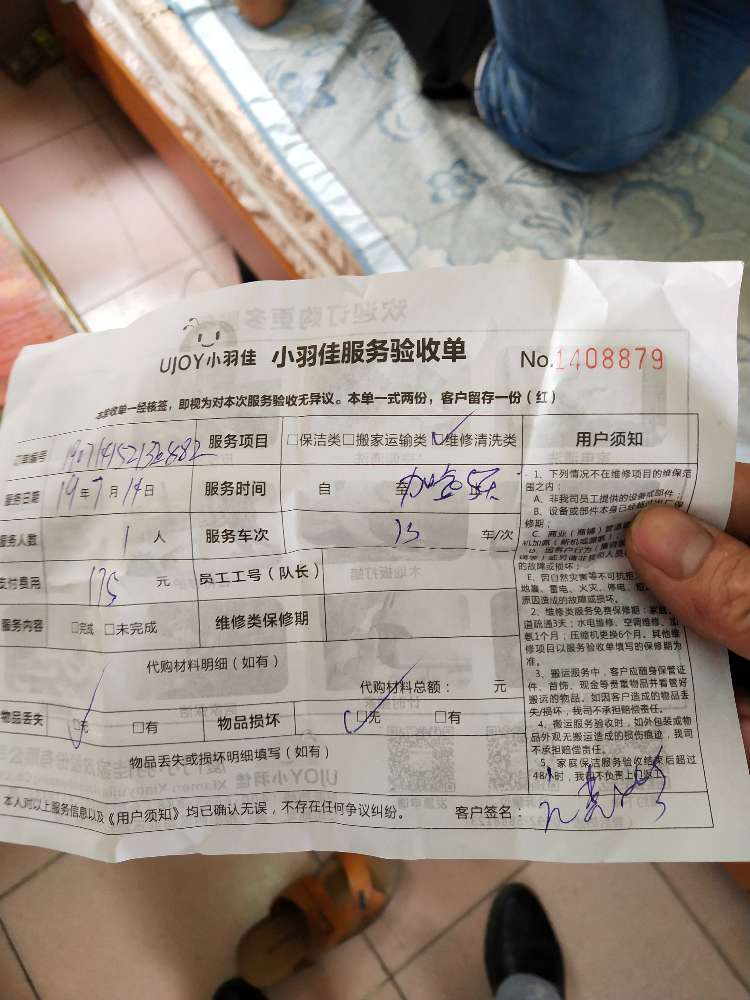 UJOY小羽佳 小羽佳服务验收单 No.1408879
本验收单一经核签，即视为对本次服务验收无异议。本单一式两份，客户留存一份（红）
订单编号 服务项目 □保洁类□搬家运输类□维修清洗类
服务日期 19年7月14日 服务时间 自 至 止
服务人数 1 人 服务车次 车/次
支付费用 175 元 员工工号（队长）
服务内容 □完成 □未完成 维修类保修期
代购材料明细（如有）
代购材料总额： 元
物品丢失 □无 □有 物品损坏 □无 □有
物品丢失或损坏明细填写（如有）
本人对以上服务信息以及《用户须知》均已确认无误，不存在任何争议纠纷。 客户签名：
用户须知
1、下列情况不在维修项目的维保范
围之内：
A、非我司员工提供的设备或部件；
B、设备或部件本身已经
修期；
的故障或损坏；
E、因自然灾害等不可抗拒
地震、雷电、火灾、停电、
原因造成的故障或损坏。
2、维修类服务免费保修期：家庭
道疏通3天；水电维修、空调维修、加
氨1个月；压缩机更换6个月。其他维
修项目以服务验收单填写的保修期为
准。
3、搬运服务中，客户应随身保管证
件、首饰、现金等贵重物品并看管好
搬运的物品。如因客户造成的物品丢
失/损坏，我司不承担赔偿责任。
4、搬运服务验收时，如外包装或物
品外观无搬运造成的损伤痕迹，我司
不承担赔偿责任。
5、家庭保洁服务验收结束后超过
48小时，我司不负责上门返工